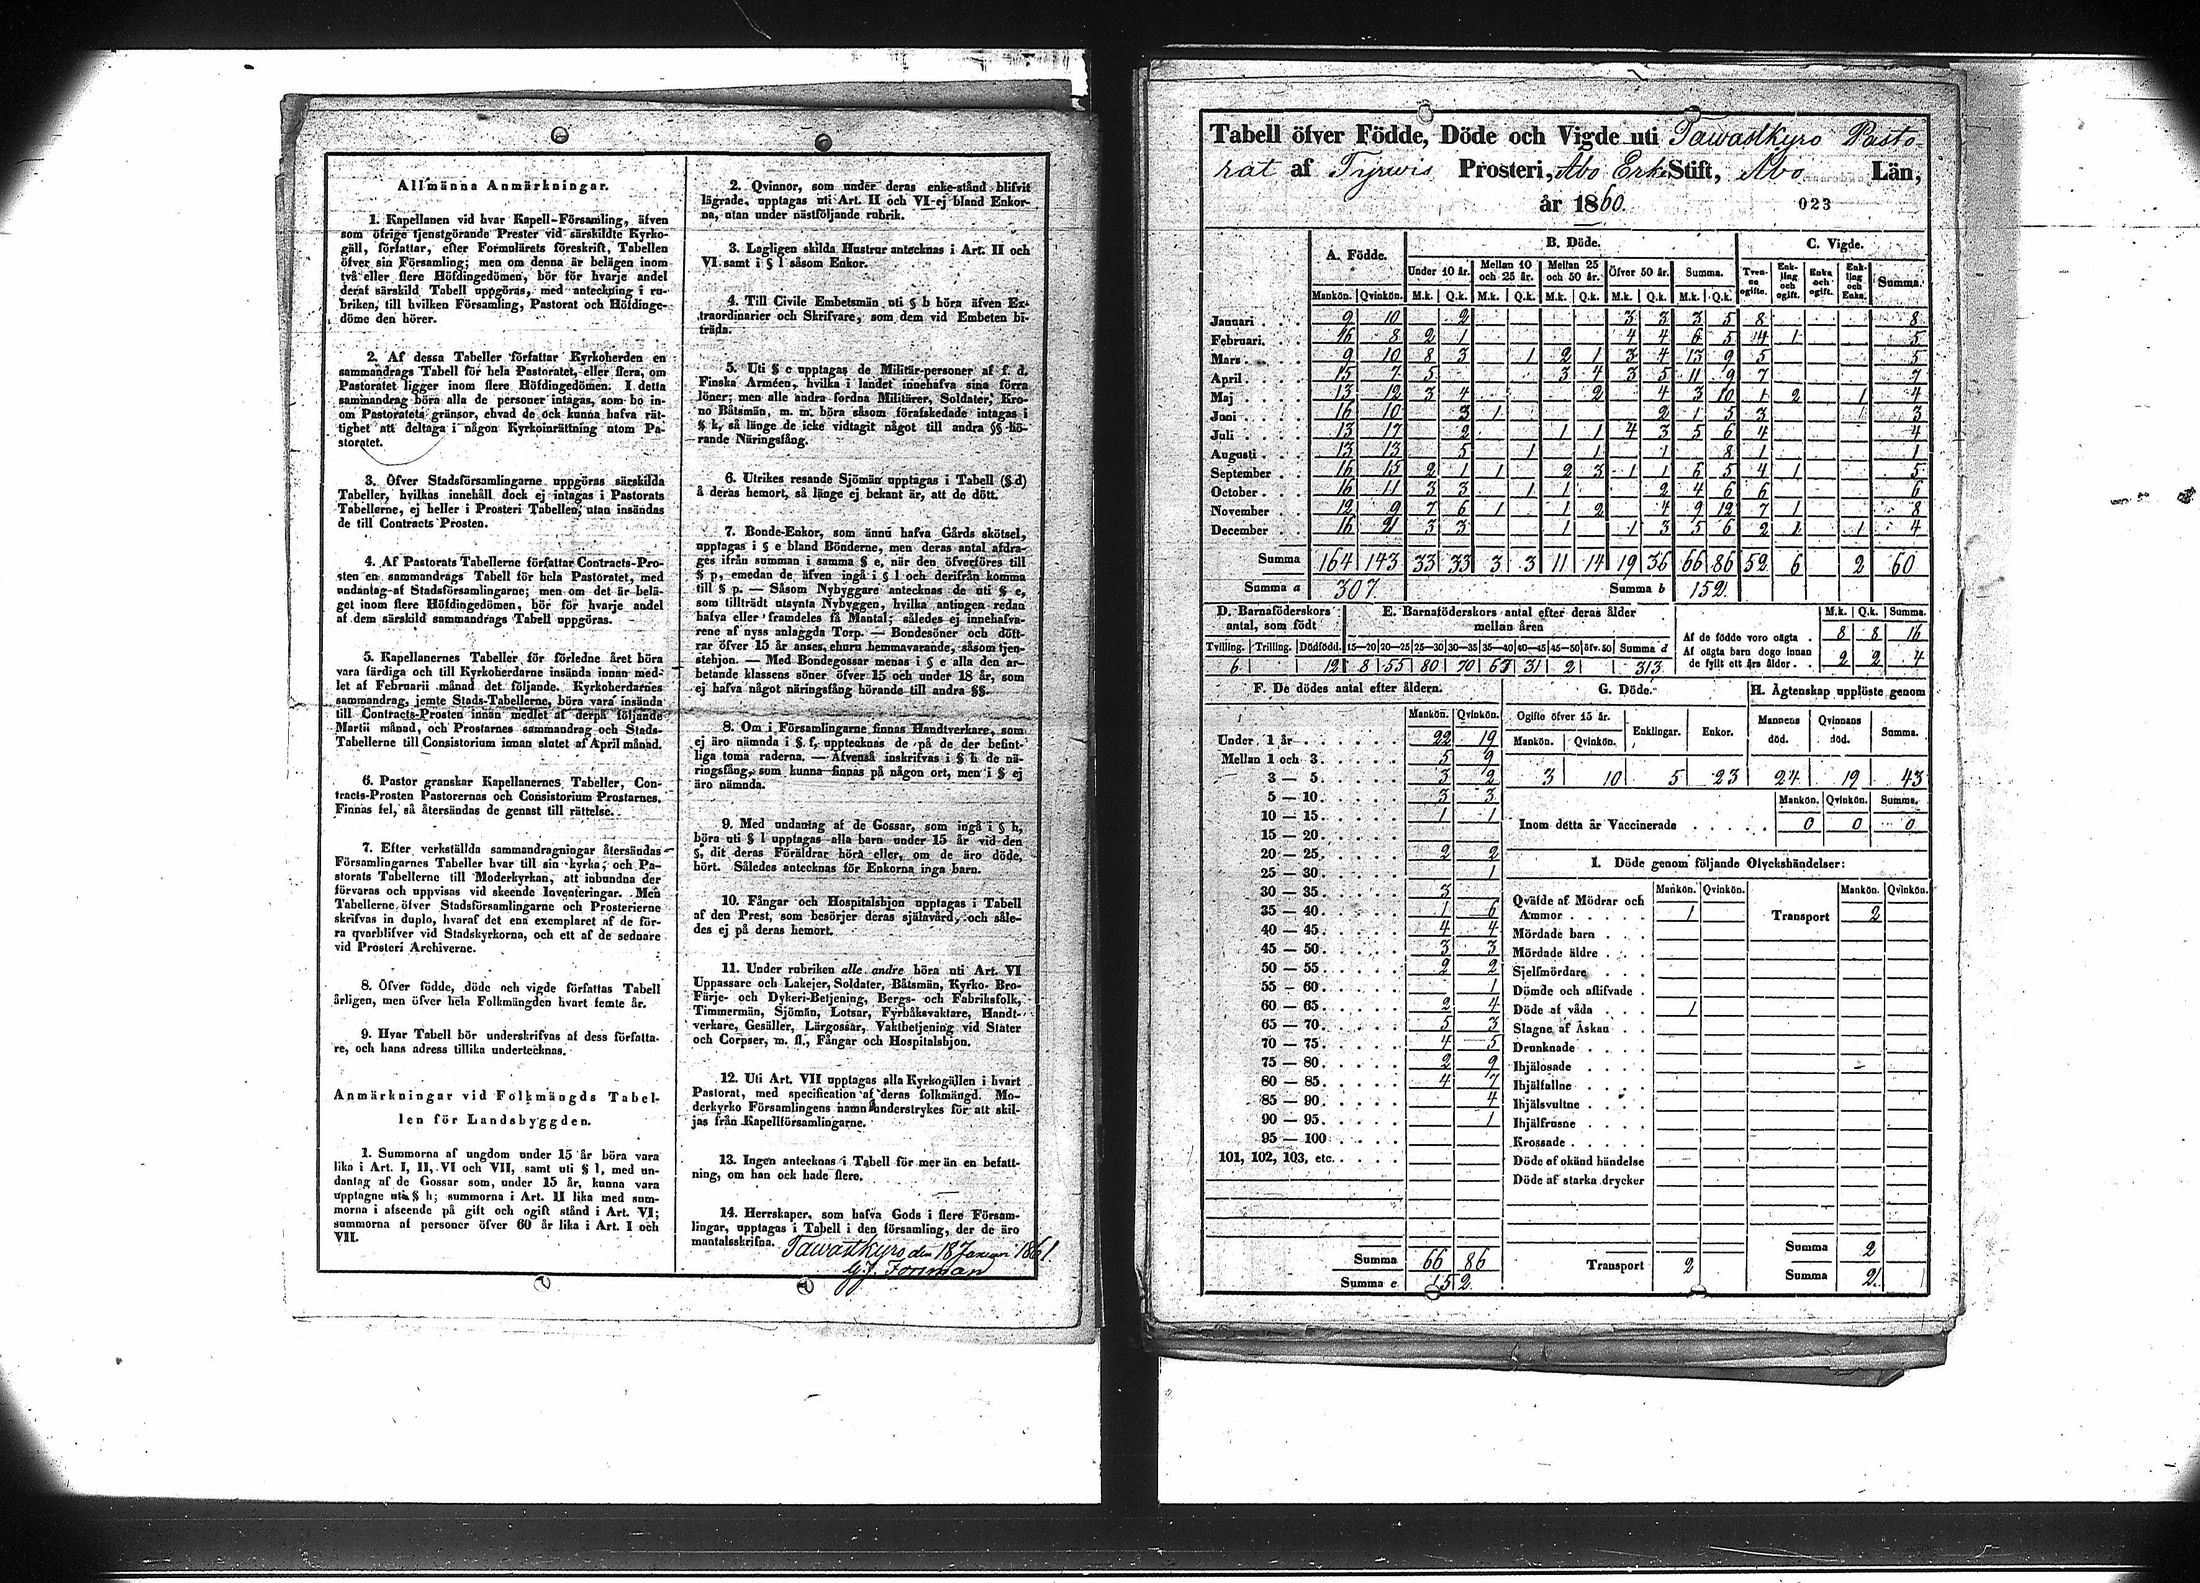 Allmänna Anmärkningar.
1. Kapellanen vid hvar Kapell-Församling, äfven
som öfrige tjenstgörande Prester vid särskildte Kyrko-
gäll, författar, efter Formulärets föreskrift, Tabellen
öfver sin Församling; men om denna är belägen inom
två eller flere Höfdingedömen, bör för hvarje andel
deraf särskild Tabell uppgöras, med anteckning i ru-
briken, till hvilken Församling, Pastorat och Höfdinge-
döme den hörer.
2. Af dessa Tabeller författar Kyrkoherden en
sammandrags Tabell för hela Pastoratet, eller flera, om
Pastoratet ligger inom flere Höfdingedömen. I detta
sammandrag böra alla de personer intagas, som bo in-
om Pastoratets gränsor, ehvad de ock kunna hafva rät-
tighet att deltaga i någon Kyrkoinrättning utom Pa-
storatet.
3. Öfver Stadsförsamlingarne uppgöras särskilda
Tabeller, hvilkas innehåll dock ej intagas i Pastorats
Tabellerne, ej heller i Prosteri Tabellen, utan insändas
de till Contracts Prosten.
4. Af Pastorats Tabellerne författar Contracts-Pro-
sten en sammandrags Tabell för hela Pastoratet, med
undantag af Stadsförsamlingarne; men om det är belä-
get inom flere Höfdingedömen, bör för hvarje andel
af dem särskild sammandrags Tabell uppgöras.
5. Kapellanernes Tabeller för förledne året böra
vara färdiga och till Kyrkoherdarne insända innan med-
let af Februarii månad det följande. Kyrkoherdarnes
sammandrag, jemte Stads-Tabellerne, böra vara insända
till Contracts-Prosten innan medlet af derpå följande
Martii månad, och Prostarnes sammandrag och Stads-
Tabellerne till Consistorium innan slutet af April månad.
6. Pastor granskar Kapellanernes Tabeller, Con-
tracts-Prosten Pastorernas och Consistorium Prostarnes.
Finnas fel, så återsändas de genast till rättelse.
7. Efter verkställda sammandragningar återsändas
Församlingarnes Tabeller hvar till sin kyrka, och Pa-
storats Tabellerne till Moderkyrkan, att inbundna der
förvaras och uppvisas vid skeende Inventeringar. Men
Tabellerne öfver Stadsförsamlingarne och Prosterierne
skrifvas in duplo, hvaraf det ena exemplaret af de för-
ra qvarblifver vid Stadskyrkorna, och ett af de sednare
vid Prosteri Archiverne.
8. Öfver födde, döde och vigde författas Tabell
årligen, men öfver hela Folkmängden hvart femte år.
9. Hvar Tabell bör underskrifvas af dess författa-
re, och hans adress tillika undertecknas.
Anmärkningar vid Folkmängds Tabel-
len för Landsbyggden.
1. Summorna af ungdom under 15 år böra vara
lika i Art. I, II, VI och VII, samt uti § l, med un-
dantag af de Gossar som, under 15 år, kunna vara
upptagne uti § h; summorna i Art. II lika med sum-
morna i afseende på gift och ogift stånd i Art. VI;
summorna af personer öfver 60 år lika i Art. I och
VII.
2. Qvinnor, som under deras enke-stånd blifvit
lägrade, upptagas uti Art. II och VI ej bland Enkor-
na, utan under nästföljande rubrik.
3. Lagligen skilda Hustrur antecknas i Art. II och
VI samt i § l såsom Enkor.
4. Till Civile Embetsmän uti § b höra äfven Ex-
traordinarier och Skrifvare, som dem vid Embeten bi-
träda.
5. Uti § c upptagas de Militär-personer af f. d.
Finska Arméen, hvilka i landet innehafva sina förra
löner; men alle andra fordna Militärer, Soldater, Kro-
no Båtsmän, m. m. böra såsom förafskedade intagas i
§ k, så länge de icke vidtagit något till andra §§ hö-
rande Näringsfång.
6. Utrikes resande Sjömän upptagas i Tabell (§ d)
å deras hemort, så länge ej bekant är, att de dött.
7. Bonde-Enkor, som ännu hafva Gårds skötsel,
upptagas i § e bland Bönderne, men deras antal afdra-
ges ifrån summan i samma § e, när den öfverföres till
§ p, emedan de äfven ingå i § l och derifrån komma
till § p. — Såsom Nybyggare antecknas de uti § e,
som tillträdt utsynta Nybyggen, hvilka antingen redan
hafva eller framdeles få Mantal; således ej innehafva-
rene af nyss anlaggda Torp. — Bondesöner och dött-
rar öfver 15 år anses, ehuru hemmavarande, såsom tjen-
stehjon. — Med Bondegossar menas i § e alla den ar-
betande klassens söner öfver 15 och under 18 år, som
ej hafva något näringsfång hörande till andra §§.
8. Om i Församlingarne finnas Handtverkare, som
ej äro nämnda i § f, upptecknas de på de der befint-
liga toma raderna. — Äfvenså inskrifvas i § h de nä-
ringsfång, som kunna finnas på någon ort, men i § ej
äro nämnda.
9. Med undantag af de Gossar, som ingå i § h,
böra uti § l upptagas alla barn under 15 år vid den
§, dit deras Föräldrar höra eller, om de äro döde,
hört. Således antecknas för Enkorna inga barn.
10. Fångar och Hospitalshjon upptagas i Tabell
af den Prest, som besörjer deras själavård, och såle-
des ej på deras hemort.
11. Under rubriken alle andre höra uti Art. VI
Uppassare och Lakejer, Soldater, Båtsmän, Kyrko- Bro-
Färje- och Dykeri-Betjening, Bergs- och Fabriksfolk,
Timmermän, Sjömän, Lotsar, Fyrbåksvaktare, Handt-
verkare, Gesäller, Lärgossar, Vaktbetjening vid Stater
och Corpser, m. fl., Fångar och Hospitalshjon.
12. Uti Art. VII upptagas alla Kyrkogällen i hvart
Pastorat, med specification af deras folkmängd. Mo-
derkyrko Församlingens namn understrykes för att skil-
jas från Kapellförsamlingarne.
13. Ingen antecknas i Tabell för mer än en befatt-
ning, om han ock hade flere.
14. Herrskaper, som hafva Gods i flere Försam-
lingar, upptagas i Tabell i den församling, der de äro
mantalsskrifna.
Tawastkyro den 18 Januari 1861
G. J. Forsman
Tabell öfver Födde, Döde och Vigde uti Tawastkyro Pasto-
rat af Tyrwis Prosteri, Åbo Erke Stift, Åbo Län,
år 1860. 023
A. Födde. B. Döde. C. Vigde.
Under 10 år. Mellan 10 och 25 år. Mellan 25 och 50 år. Öfver 50 år. Summa. Tvenne ogifte. Enkling och ogift. Enka och ogift. Enkling och Enka. Summa.
Mankön. Qvinkön. M.k. Q.k. M.k. Q.k. M.k. Q.k. M.k. Q.k. M.k. Q.k.
Januari 9 10 2 3 3 3 5 8 8
Februari 16 8 2 1 4 4 6 5 4 1 5
Mars 9 10 8 3 1 2 1 3 4 13 9 5 5
April 15 7 5 3 4 3 5 11 9 7 7
Maj 13 12 3 4 2 4 3 10 1 2 1 4
Juni 16 10 3 1 2 1 5 3 3
Juli 13 17 2 1 1 4 3 5 6 4 4
Augusti 13 13 5 1 1 1 8 1 1
September 16 15 2 1 1 2 3 1 1 6 5 4 1 5
October 16 11 3 3 1 1 2 4 6 6 6
November 12 9 7 6 1 1 2 4 9 12 7 1 8
December 16 21 3 3 1 1 3 5 6 2 1 1 4
Summa 164 143 33 33 3 3 11 14 19 36 66 86 52 6 2 60
Summa a 307. Summa b 152.
D. Barnaföderskors antal, som födt E. Barnaföderskors antal efter deras ålder mellan åren M.k. Q.k. Summa.
Af de födde voro oägta 8 8 16
Af oägta barn dogo innan de fyllt ett års ålder 2 2 4
Tvilling. Trilling. Dödfödd. 15—20 20—25 25—30 30—35 35—40 40—45 45—50 öfv. 50 Summa d
6 12 8 55 80 70 67 31 2 313
F. De dödes antal efter åldern.
Mankön. Qvinkön.
Under 1 år 22 19
Mellan 1 och 3 5 9
3 — 5 3 2
5 — 10 3 3
10 — 15 1 1
15 — 20
20 — 25 2 2
25 — 30 1
30 — 35 3
35 — 40 1 6
40 — 45 4 4
45 — 50 3 3
50 — 55 2 2
55 — 60 1
60 — 65 2 4
65 — 70 5 3
70 — 75 4 5
75 — 80 2 9
80 — 85 4 7
85 — 90 4
90 — 95 1
95 — 100
101, 102, 103, etc.
Summa 66 86
Summa e 152
G. Döde. H. Ägtenskap upplöste genom
Ogifte öfver 15 år. Enklingar. Enkor. Mannens död. Qvinnans död. Summa.
Mankön. Qvinkön.
3 10 5 23 24 19 43
Mankön. Qvinkön. Summa.
Inom detta år Vaccinerade 0 0 0
I. Döde genom följande Olyckshändelser:
Mankön. Qvinkön. Mankön. Qvinkön.
Qväfde af Mödrar och Ammor 1 Transport 2
Mördade barn
Mördade äldre
Sjelfmördare
Dömde och aflifvade
Döde af våda 1
Slagne af Åskan
Drunknade
Ihjälosade
Ihjälfallne
Ihjälsvultne
Ihjälfrusne
Krossade
Döde af okänd händelse
Döde af starka drycker
Summa 2
Transport 2 Summa 2